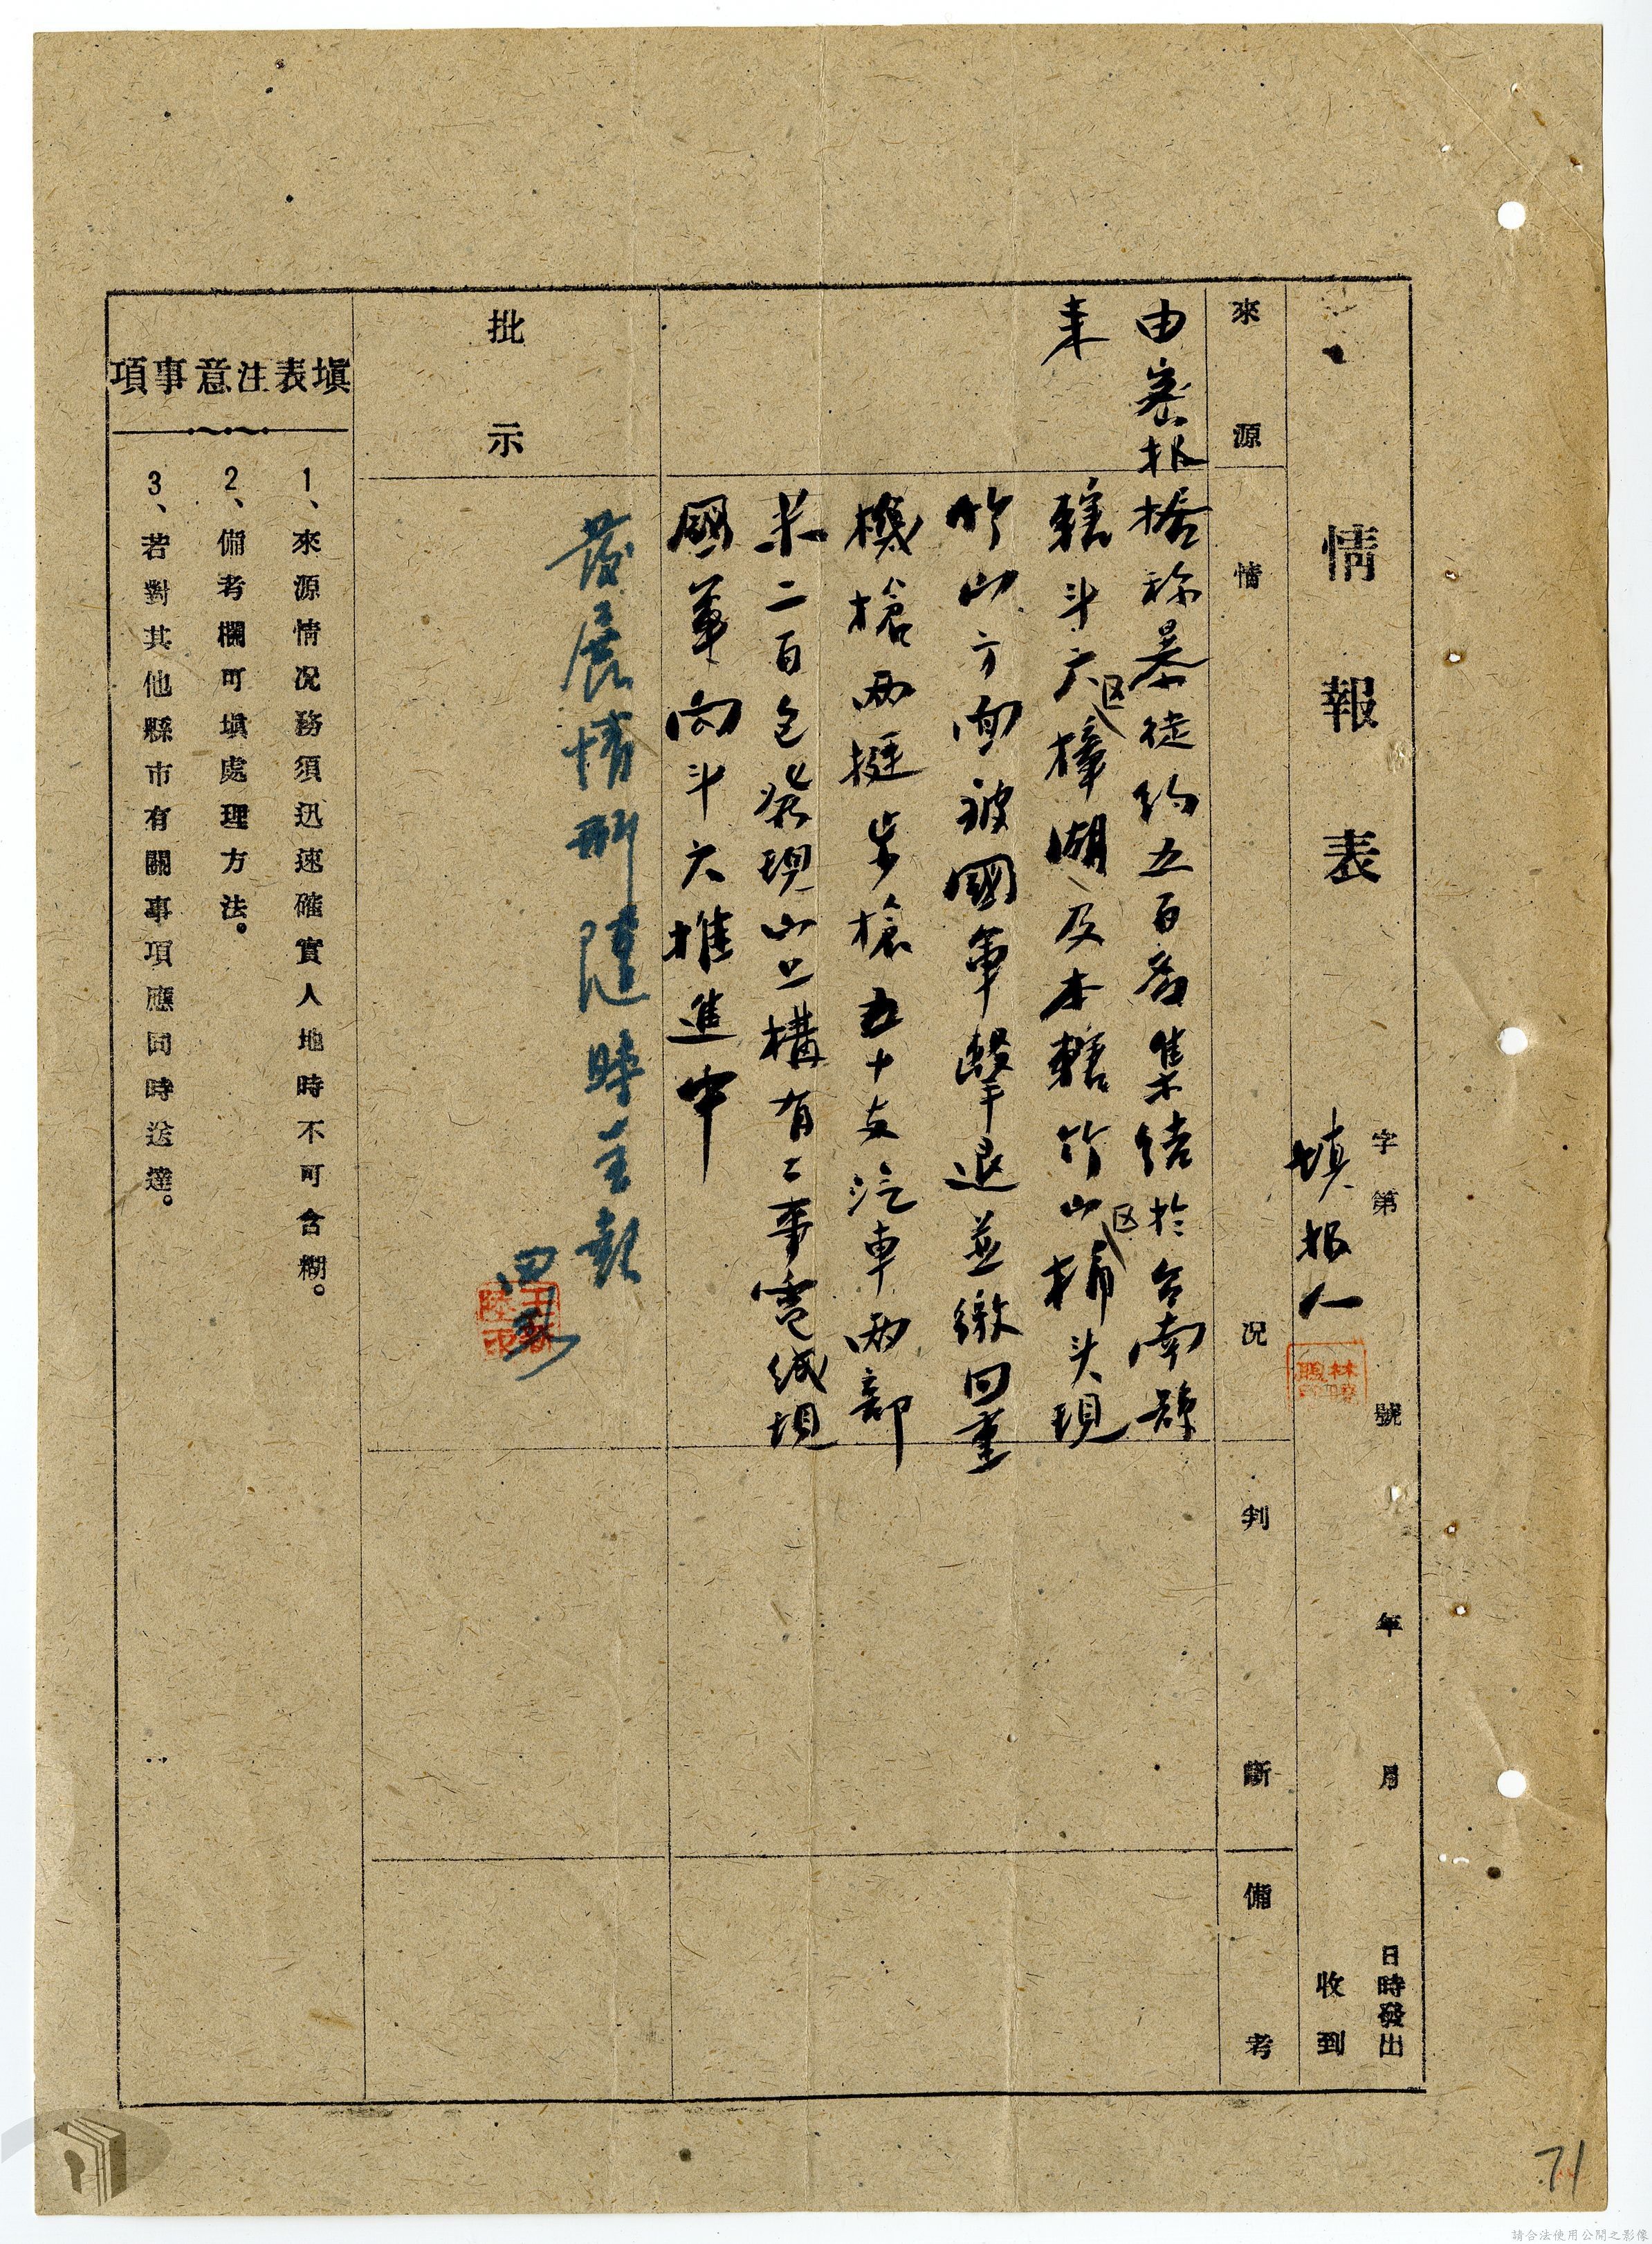 情報表
字第　號　年　月　日時發出
收到
填報人
來源
情況
判斷
備考
由密报
来
据称暴徒約五百名集結於台南縣
轄斗六区樟湖、及本轄竹山区桶头現
竹山方面被國軍擊退並繳回重
機槍兩挺步槍五十支汽車兩部
米二百包發現山上構有工事電線現
國軍向斗六推進中
批示
發展情形隨時具報
填表注意事項
1、來源情况務須迅速確實人地時不可含糊。
2、備考欄可填處理方法。
3、若對其他縣市有關事項應同時送達。
71
請合法使用公開之影像